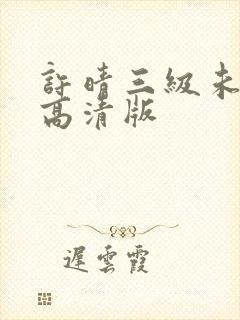 許晴三級未
高清版
遲雲霞